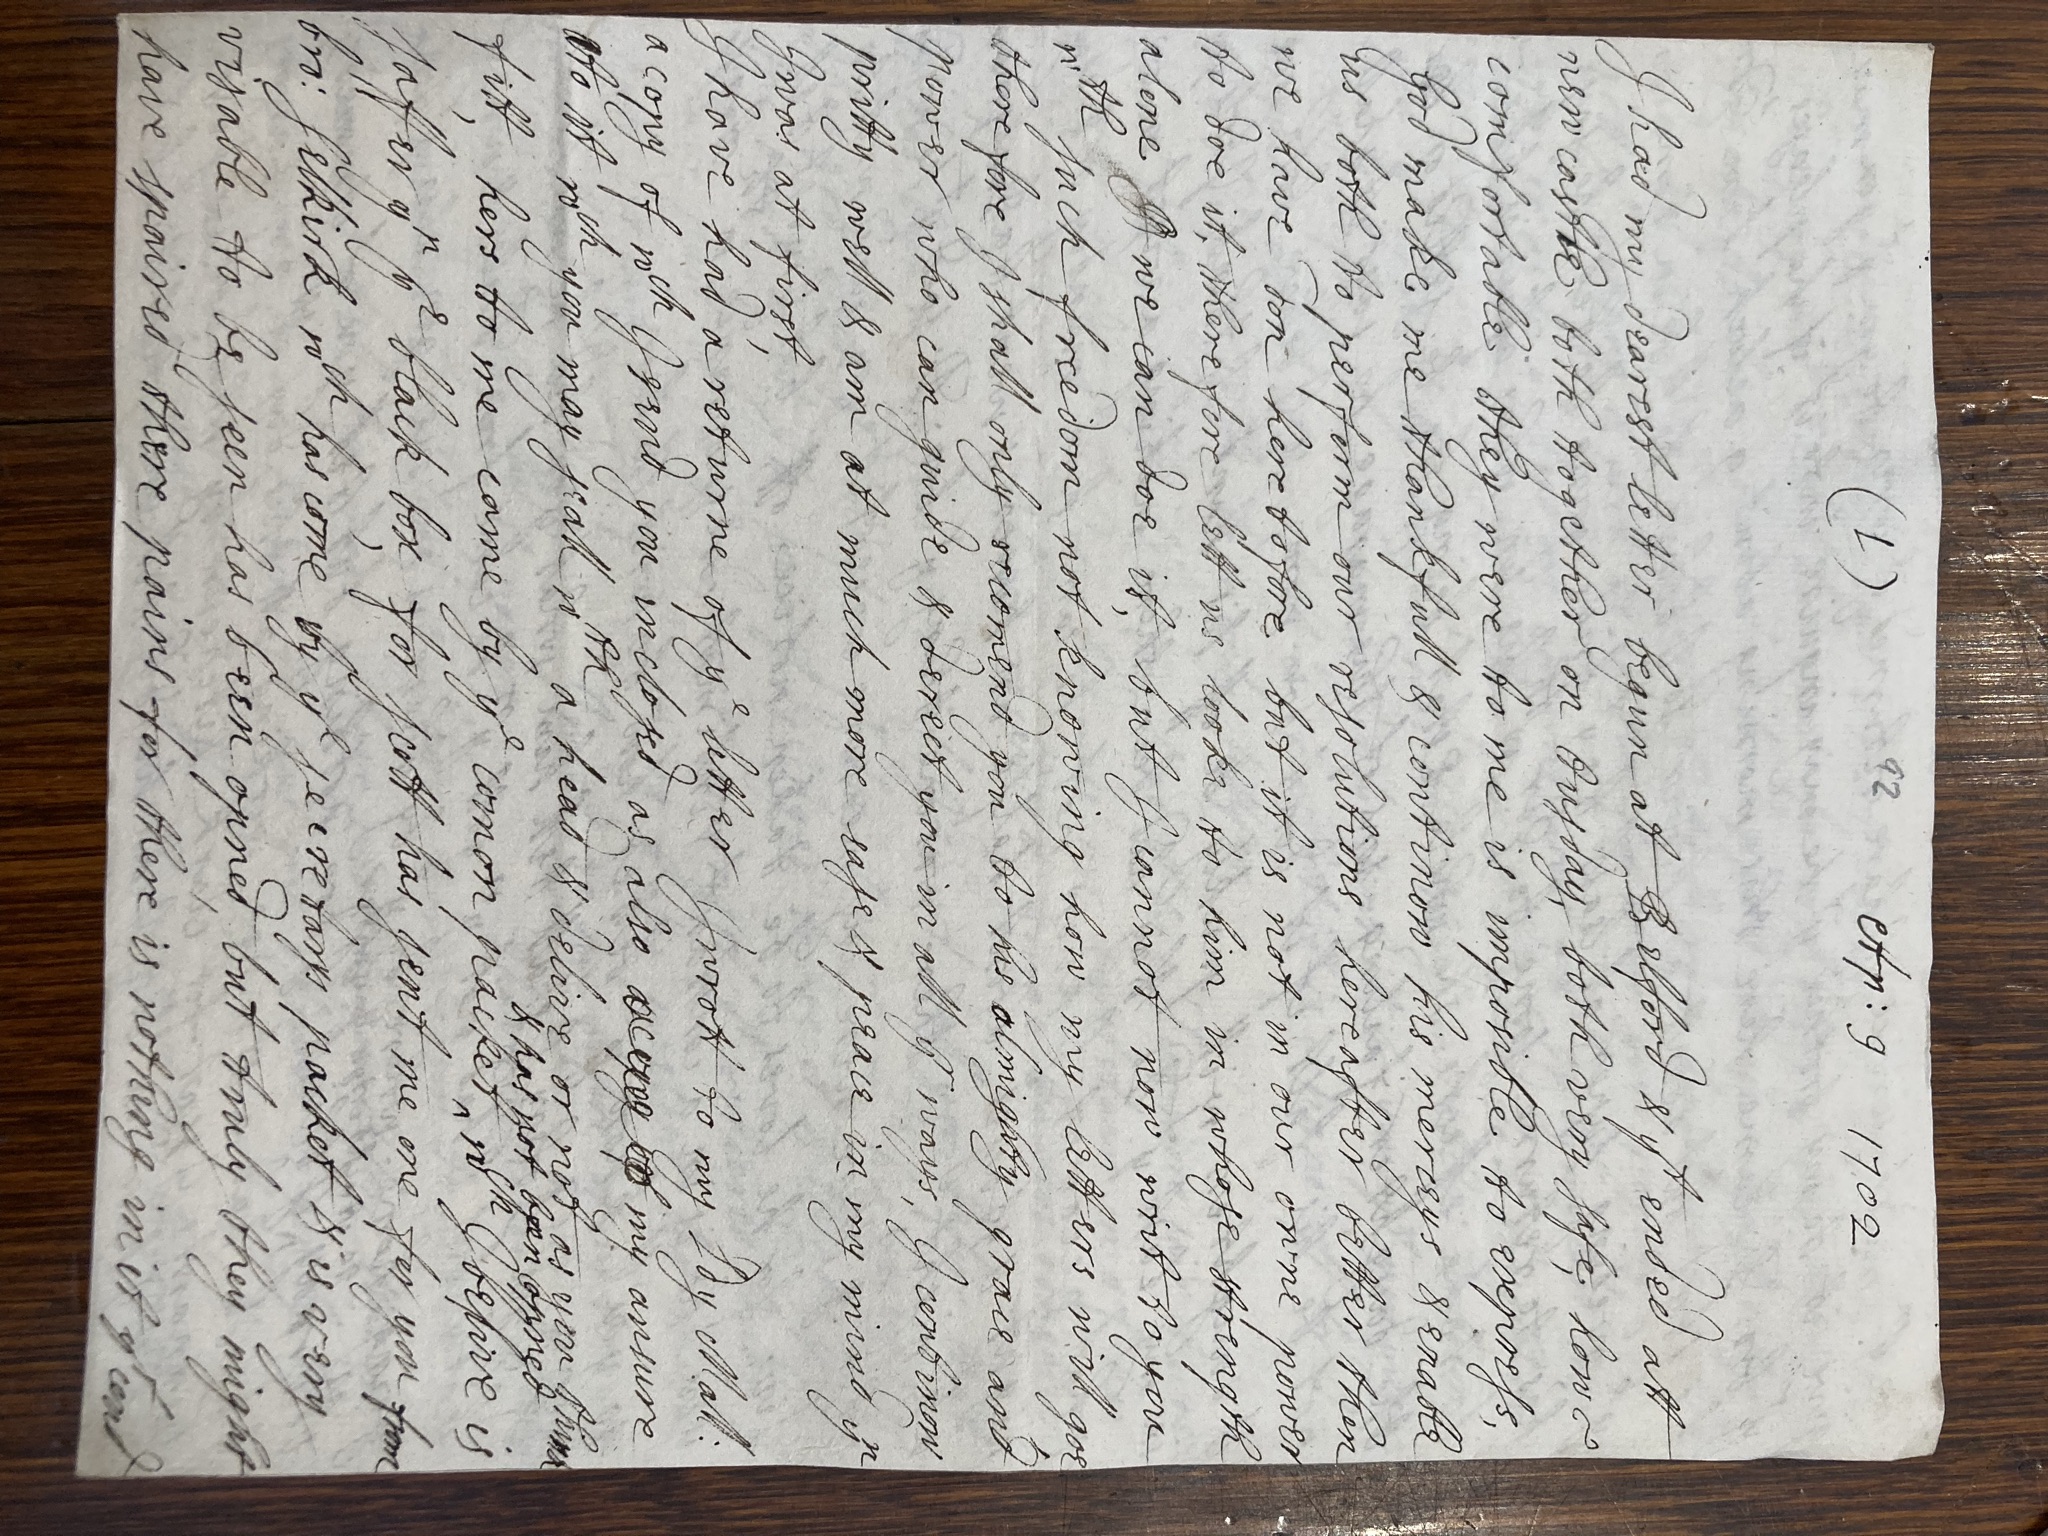 (1) 92 Ap: 9 1702
I had my dearest letter begun at Belford & yt ended att
newcastle both together on tusday, both very safe, how
comfortable they were to me is imposible to express,
God make me thankfull & continow his merceys & enable
us both to perform our resolutions hereafter better then
we have don heretofore but it is not in our owne power
to doe it, therefore lett us looke to him in whose strength
alone we can doe it, but I cannot now writ to you
wth such freedom not knowing how my letters will goe,
therefore I shall only recomend you to his almighty grace and
power who can guide & derect you in all yr ways, I continow
pritty well & am at much more ease & peace in my mind yn
I was at first,
I have had a returne of ye letter I wrott to my Ldy Mall:
a copy of wch I send you inclosed as also my ansure
to it wch you may seall wth a head & delive or not as you think
& has not been opned
fitt, hers to me came by ye comon packet ^ wch I belive is
saffer yn ye black box, for scott has sent me one for you from
bro: Selkirk wch has come by ye secretarys packet & is very
visable to be seen has been opned, but truly they might
have spaired there pains for there is nothing in it yt coud